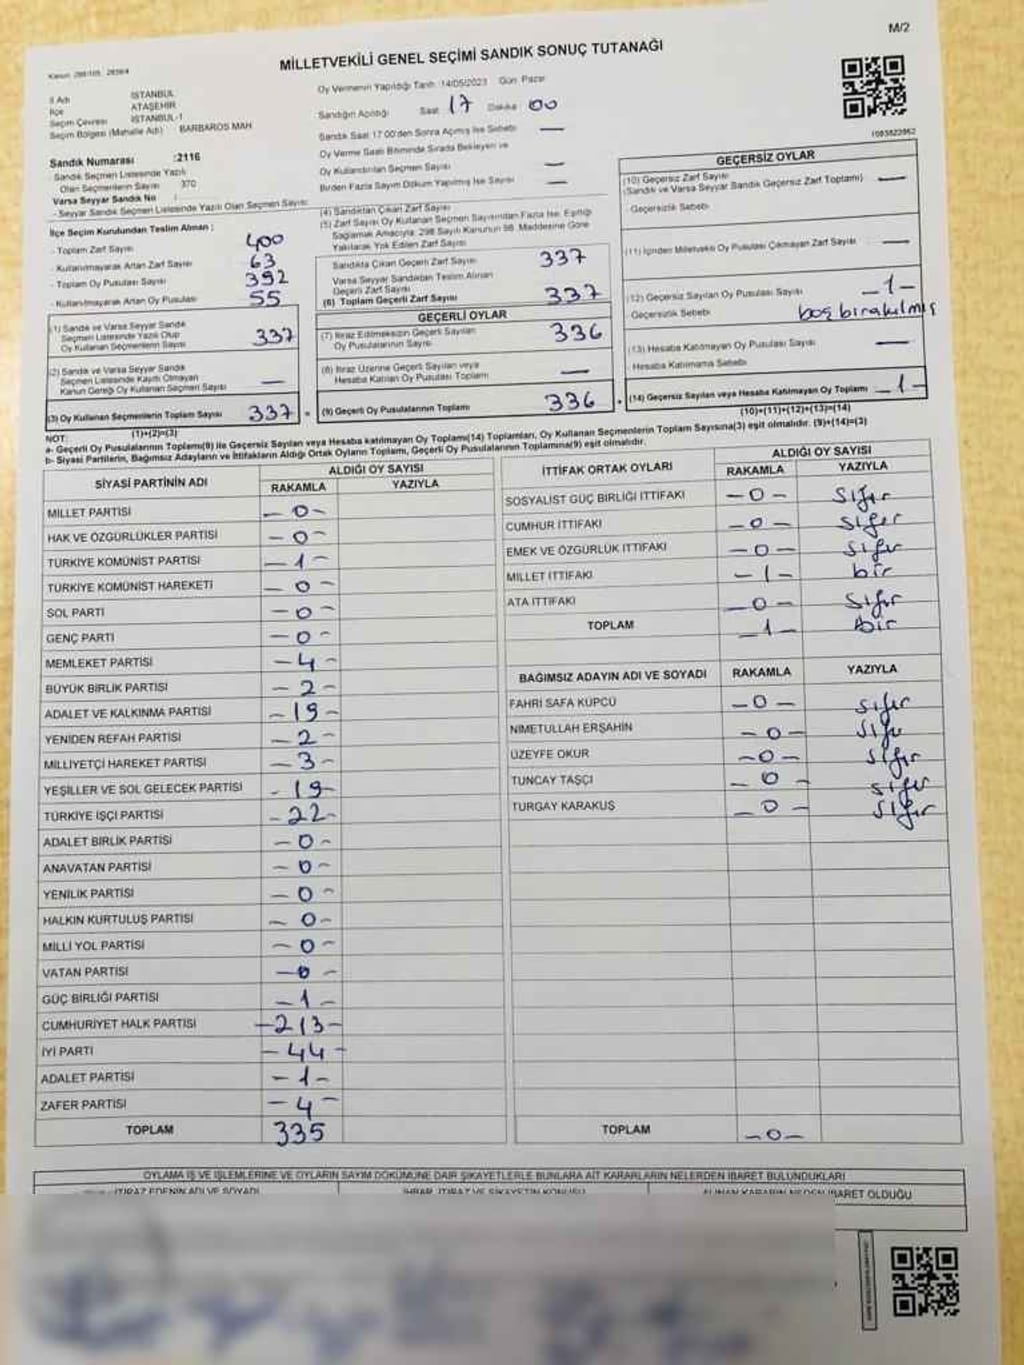 M/2
MİLLETVEKİLİ GENEL SEÇİMİ SANDIK SONUÇ TUTANAĞI
İl Adı İSTANBUL
İlçe ATAŞEHİR
Seçim Çevresi İSTANBUL-1
Seçim Bölgesi (Mahalle Adı) BARBAROS MAH
Sandık Numarası :2116
Sandık Seçmen Listesinde Yazılı
Olan Seçmenlerin Sayısı 370
Varsa Seyyar Sandık No :
- Seyyar Sandık Seçmen Listesinde Yazılı Olan Seçmen Sayısı
İlçe Seçim Kurulundan Teslim Alınan :
- Toplam Zarf Sayısı 400
- Kullanılmayarak Artan Zarf Sayısı 63
- Toplam Oy Pusulası Sayısı 392
- Kullanılmayarak Artan Oy Pusulası 55
(1) Sandık ve Varsa Seyyar Sandık
Seçmen Listesinde Yazılı Olup
Oy Kullanan Seçmenlerin Sayısı 337
(2) Sandık ve Varsa Seyyar Sandık
Seçmen Listesinde Kayıtlı Olmayan
Kanun Gereği Oy Kullanan Seçmen Sayısı —
(3) Oy Kullanan Seçmenlerin Toplam Sayısı 337 =
(1)+(2)=(3)
Oy Vermenin Yapıldığı Tarih :14/05/2023 Gün: Pazar
Sandığın Açıldığı Saat 17 Dakika 00
Sandık Saat 17.00'den Sonra Açılmış İse Sebebi —
Oy Verme Saati Bitiminde Sırada Bekleyen ve
Oy Kullandırılan Seçmen Sayısı —
Birden Fazla Sayım Döküm Yapılmış İse Sayısı —
(4) Sandıktan Çıkan Zarf Sayısı
(5) Zarf Sayısı Oy Kullanan Seçmen Sayısından Fazla İse, Eşitliği
Sağlamak Amacıyla; 298 Sayılı Kanunun 98. Maddesine Göre
Yakılarak Yok Edilen Zarf Sayısı
Sandıkta Çıkan Geçerli Zarf Sayısı 337
Varsa Seyyar Sandıktan Teslim Alınan
Geçerli Zarf Sayısı
(6) Toplam Geçerli Zarf Sayısı 337
GEÇERLİ OYLAR
(7) İtiraz Edilmeksizin Geçerli Sayılan
Oy Pusulalarının Sayısı 336
(8) İtiraz Üzerine Geçerli Sayılan veya
Hesaba Katılan Oy Pusulası Toplamı —
(9) Geçerli Oy Pusulalarının Toplamı 336 +
1083822962
GEÇERSİZ OYLAR
(10) Geçersiz Zarf Sayısı
(Sandık ve Varsa Seyyar Sandık Geçersiz Zarf Toplamı) —
- Geçersizlik Sebebi
(11) İçinden Milletvekili Oy Pusulası Çıkmayan Zarf Sayısı —
(12) Geçersiz Sayılan Oy Pusulası Sayısı -1-
- Geçersizlik Sebebi boş bırakılmış
(13) Hesaba Katılmayan Oy Pusulası Sayısı —
- Hesaba Katılmama Sebebi
(14) Geçersiz Sayılan veya Hesaba Katılmayan Oy Toplamı -1-
(10)+(11)+(12)+(13)=(14)
NOT:
a- Geçerli Oy Pusulalarının Toplamı(9) ile Geçersiz Sayılan veya Hesaba katılmayan Oy Toplamı(14) Toplamları, Oy Kullanan Seçmenlerin Toplam Sayısına(3) eşit olmalıdır. (9)+(14)=(3)
b- Siyasi Partilerin, Bağımsız Adayların ve İttifakların Aldığı Ortak Oyların Toplamı, Geçerli Oy Pusulalarının Toplamına(9) eşit olmalıdır.
SİYASİ PARTİNİN ADI
ALDIĞI OY SAYISI
RAKAMLA YAZIYLA
MİLLET PARTİSİ -0-
HAK VE ÖZGÜRLÜKLER PARTİSİ -0-
TÜRKİYE KOMÜNİST PARTİSİ -1-
TÜRKİYE KOMÜNİST HAREKETİ -0-
SOL PARTİ -0-
GENÇ PARTİ -0-
MEMLEKET PARTİSİ -4-
BÜYÜK BİRLİK PARTİSİ -2-
ADALET VE KALKINMA PARTİSİ -19-
YENİDEN REFAH PARTİSİ -2-
MİLLİYETÇİ HAREKET PARTİSİ -3-
YEŞİLLER VE SOL GELECEK PARTİSİ -19-
TÜRKİYE İŞÇİ PARTİSİ -22-
ADALET BİRLİK PARTİSİ -0-
ANAVATAN PARTİSİ -0-
YENİLİK PARTİSİ -0-
HALKIN KURTULUŞ PARTİSİ -0-
MİLLİ YOL PARTİSİ -0-
VATAN PARTİSİ -0-
GÜÇ BİRLİĞİ PARTİSİ -1-
CUMHURİYET HALK PARTİSİ -213-
İYİ PARTİ -44-
ADALET PARTİSİ -1-
ZAFER PARTİSİ -4-
TOPLAM 335
İTTİFAK ORTAK OYLARI
ALDIĞI OY SAYISI
RAKAMLA YAZIYLA
SOSYALİST GÜÇ BİRLİĞİ İTTİFAKI -0- sıfır
CUMHUR İTTİFAKI -0- sıfır
EMEK VE ÖZGÜRLÜK İTTİFAKI -0- sıfır
MİLLET İTTİFAKI -1- bir
ATA İTTİFAKI -0- sıfır
TOPLAM -1- bir
BAĞIMSIZ ADAYIN ADI VE SOYADI RAKAMLA YAZIYLA
FAHRİ SAFA KÜPCÜ -0- sıfır
NİMETULLAH ERŞAHİN -0- sıfır
ÜZEYFE OKUR -0- sıfır
TUNCAY TAŞÇI -0- sıfır
TURGAY KARAKUŞ -0- sıfır
TOPLAM -0-
OYLAMA İŞ VE İŞLEMLERİNE VE OYLARIN SAYIM DÖKÜMÜNE DAİR ŞİKAYETLERLE BUNLARA AİT KARARLARIN NELERDEN İBARET BULUNDUKLARI
İTİRAZ EDENİN ADI VE SOYADI İHBAR, İTİRAZ VE ŞİKAYETİN KONUSU ALINAN KARARIN NEDEN İBARET OLDUĞU